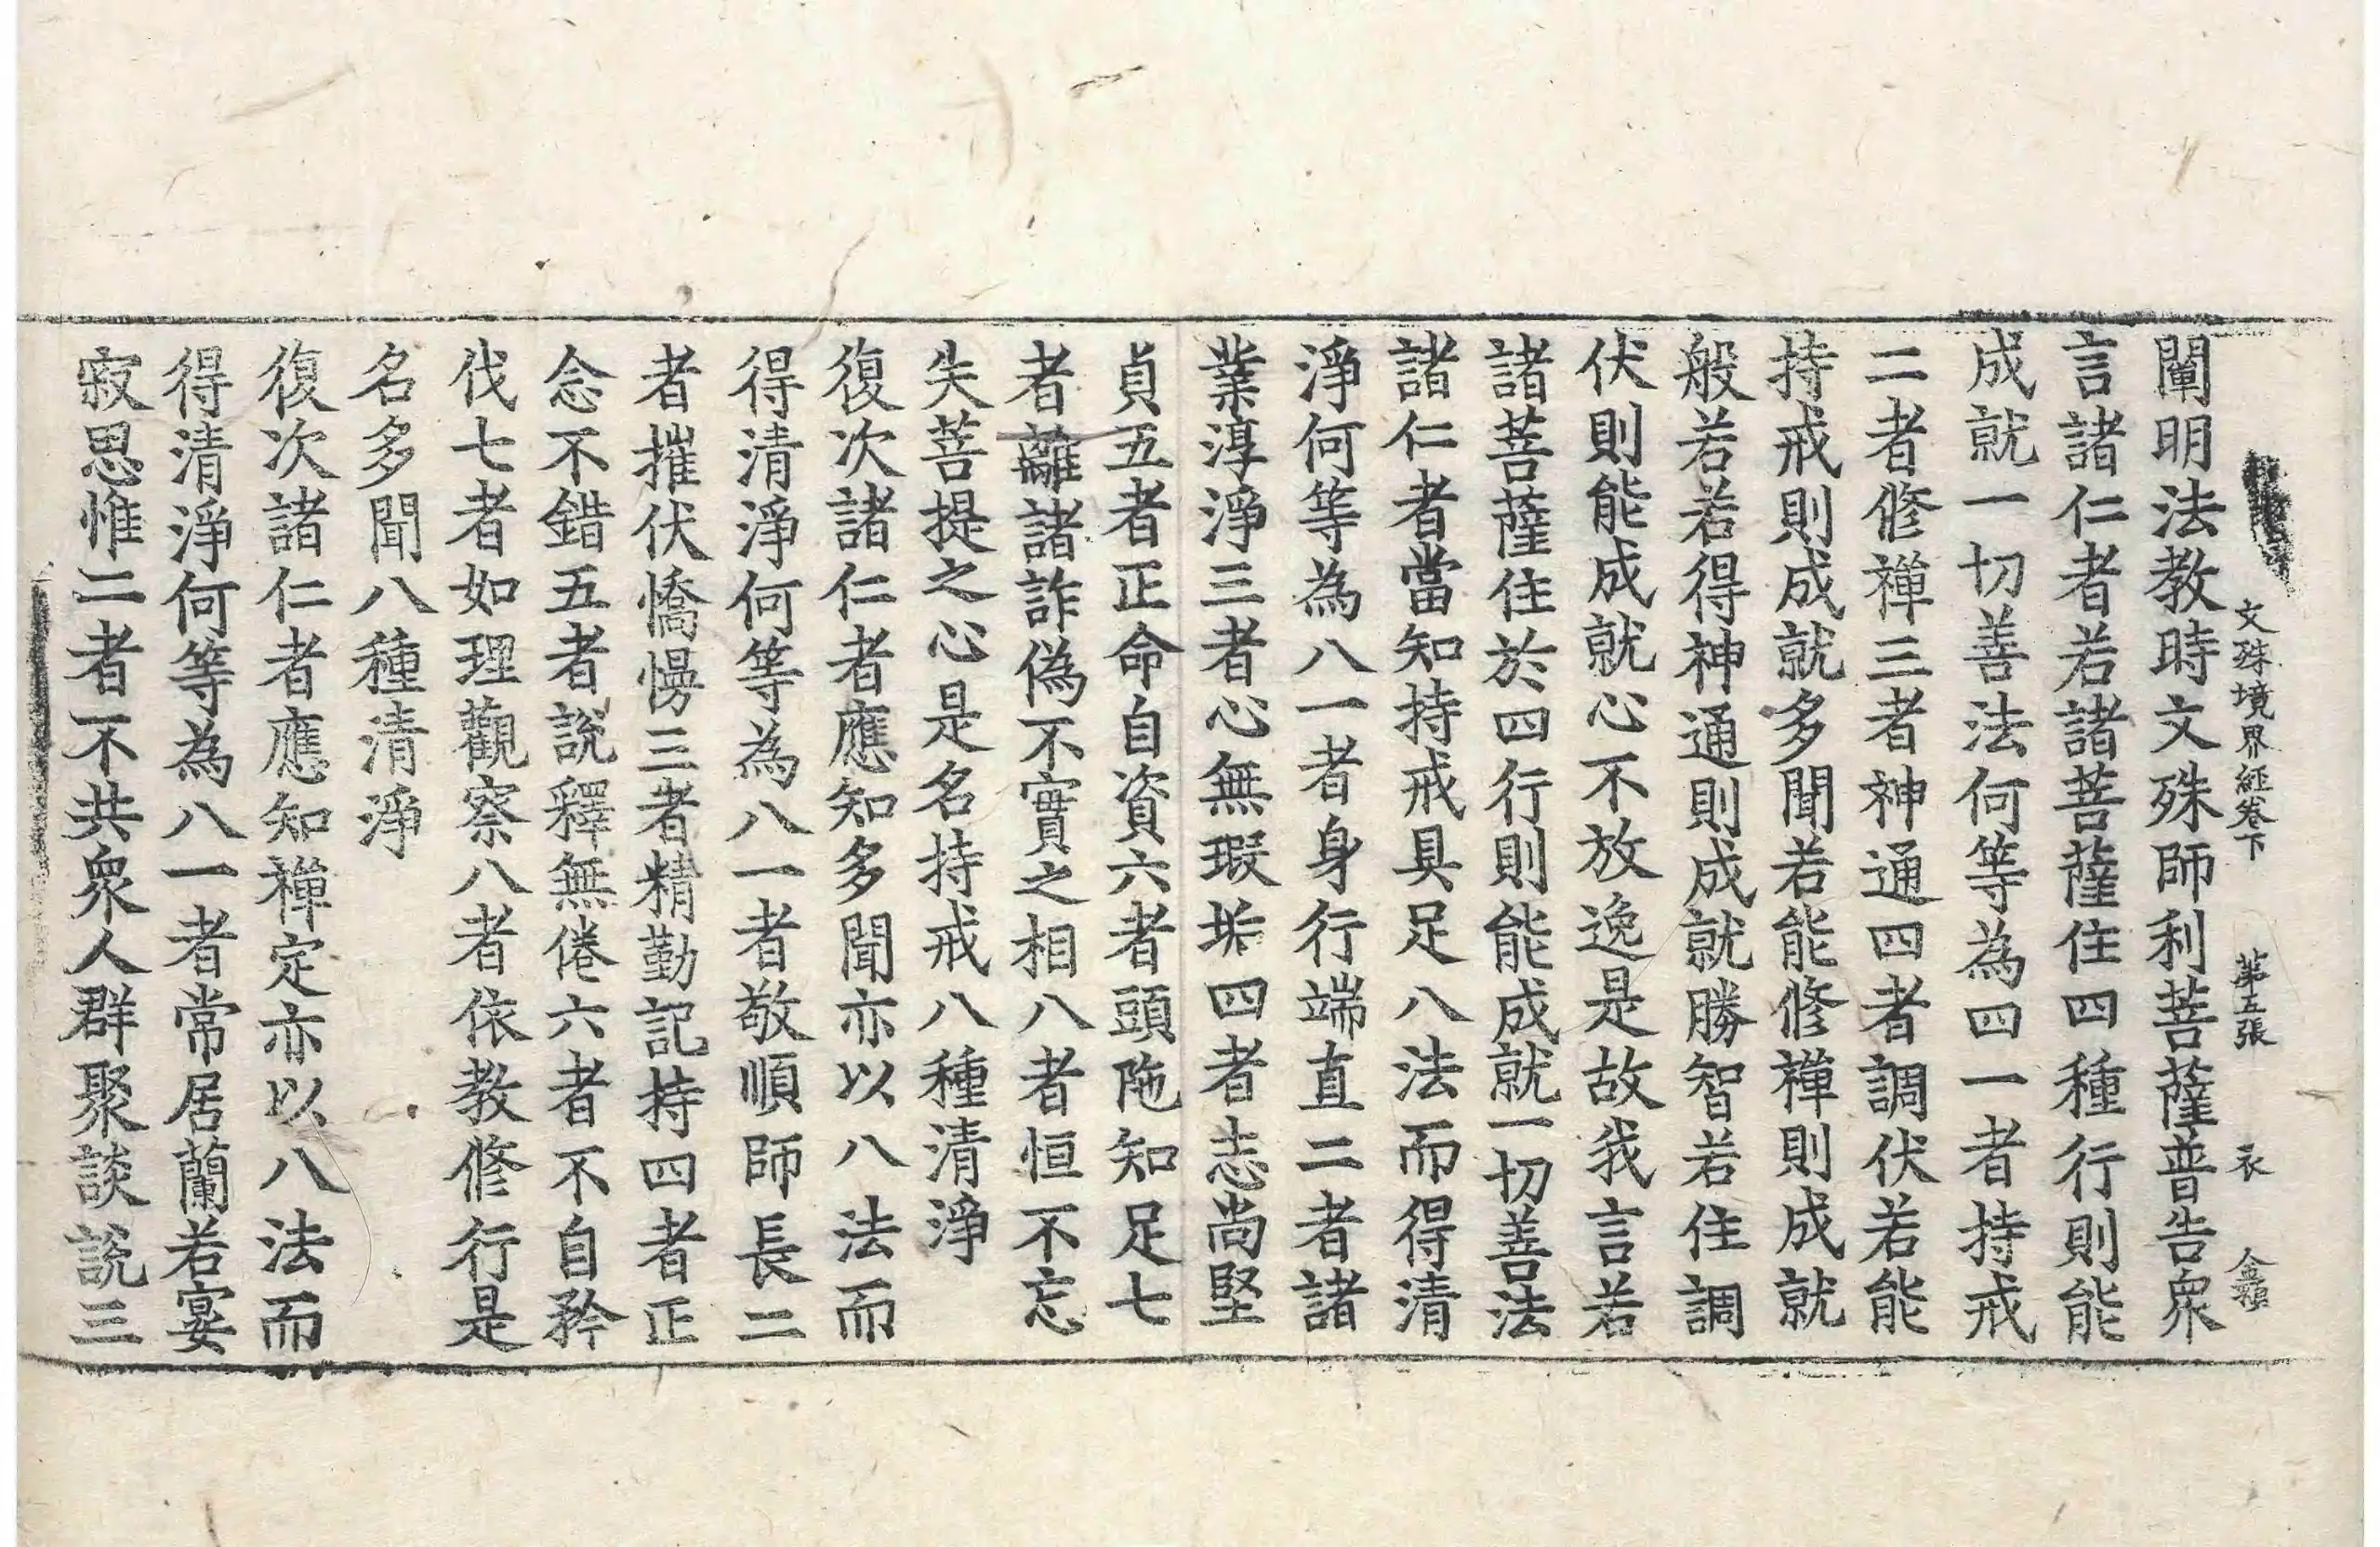 文殊境界經卷下 第五張 衣
闡明法教時文殊師利菩薩普告衆
言諸仁者若諸菩薩住四種行則能
成就一切善法何等為四一者持戒
二者修禪三者神通四者調伏若能
持戒則成就多聞若能修禪則成就
般若若得神通則成就勝智若住調
伏則能成就心不放逸是故我言若
諸菩薩住於四行則能成就一切善法
諸仁者當知持戒具足八法而得清
淨何等為八一者身行端直二者諸
業淳淨三者心無瑕垢四者志尚堅
貞五者正命自資六者頭陁知足七
者離諸詐偽不實之相八者恒不忘
失菩提之心是名持戒八種清淨
復次諸仁者應知多聞亦以八法而
得清淨何等為八一者敬順師長二
者摧伏憍慢三者精勤記持四者正
念不錯五者說釋無倦六者不自矜
伐七者如理觀察八者依教修行是
名多聞八種清淨
復次諸仁者應知禪定亦以八法而
得清淨何等為八一者常居蘭若宴
寂思惟二者不共衆人群聚談說三